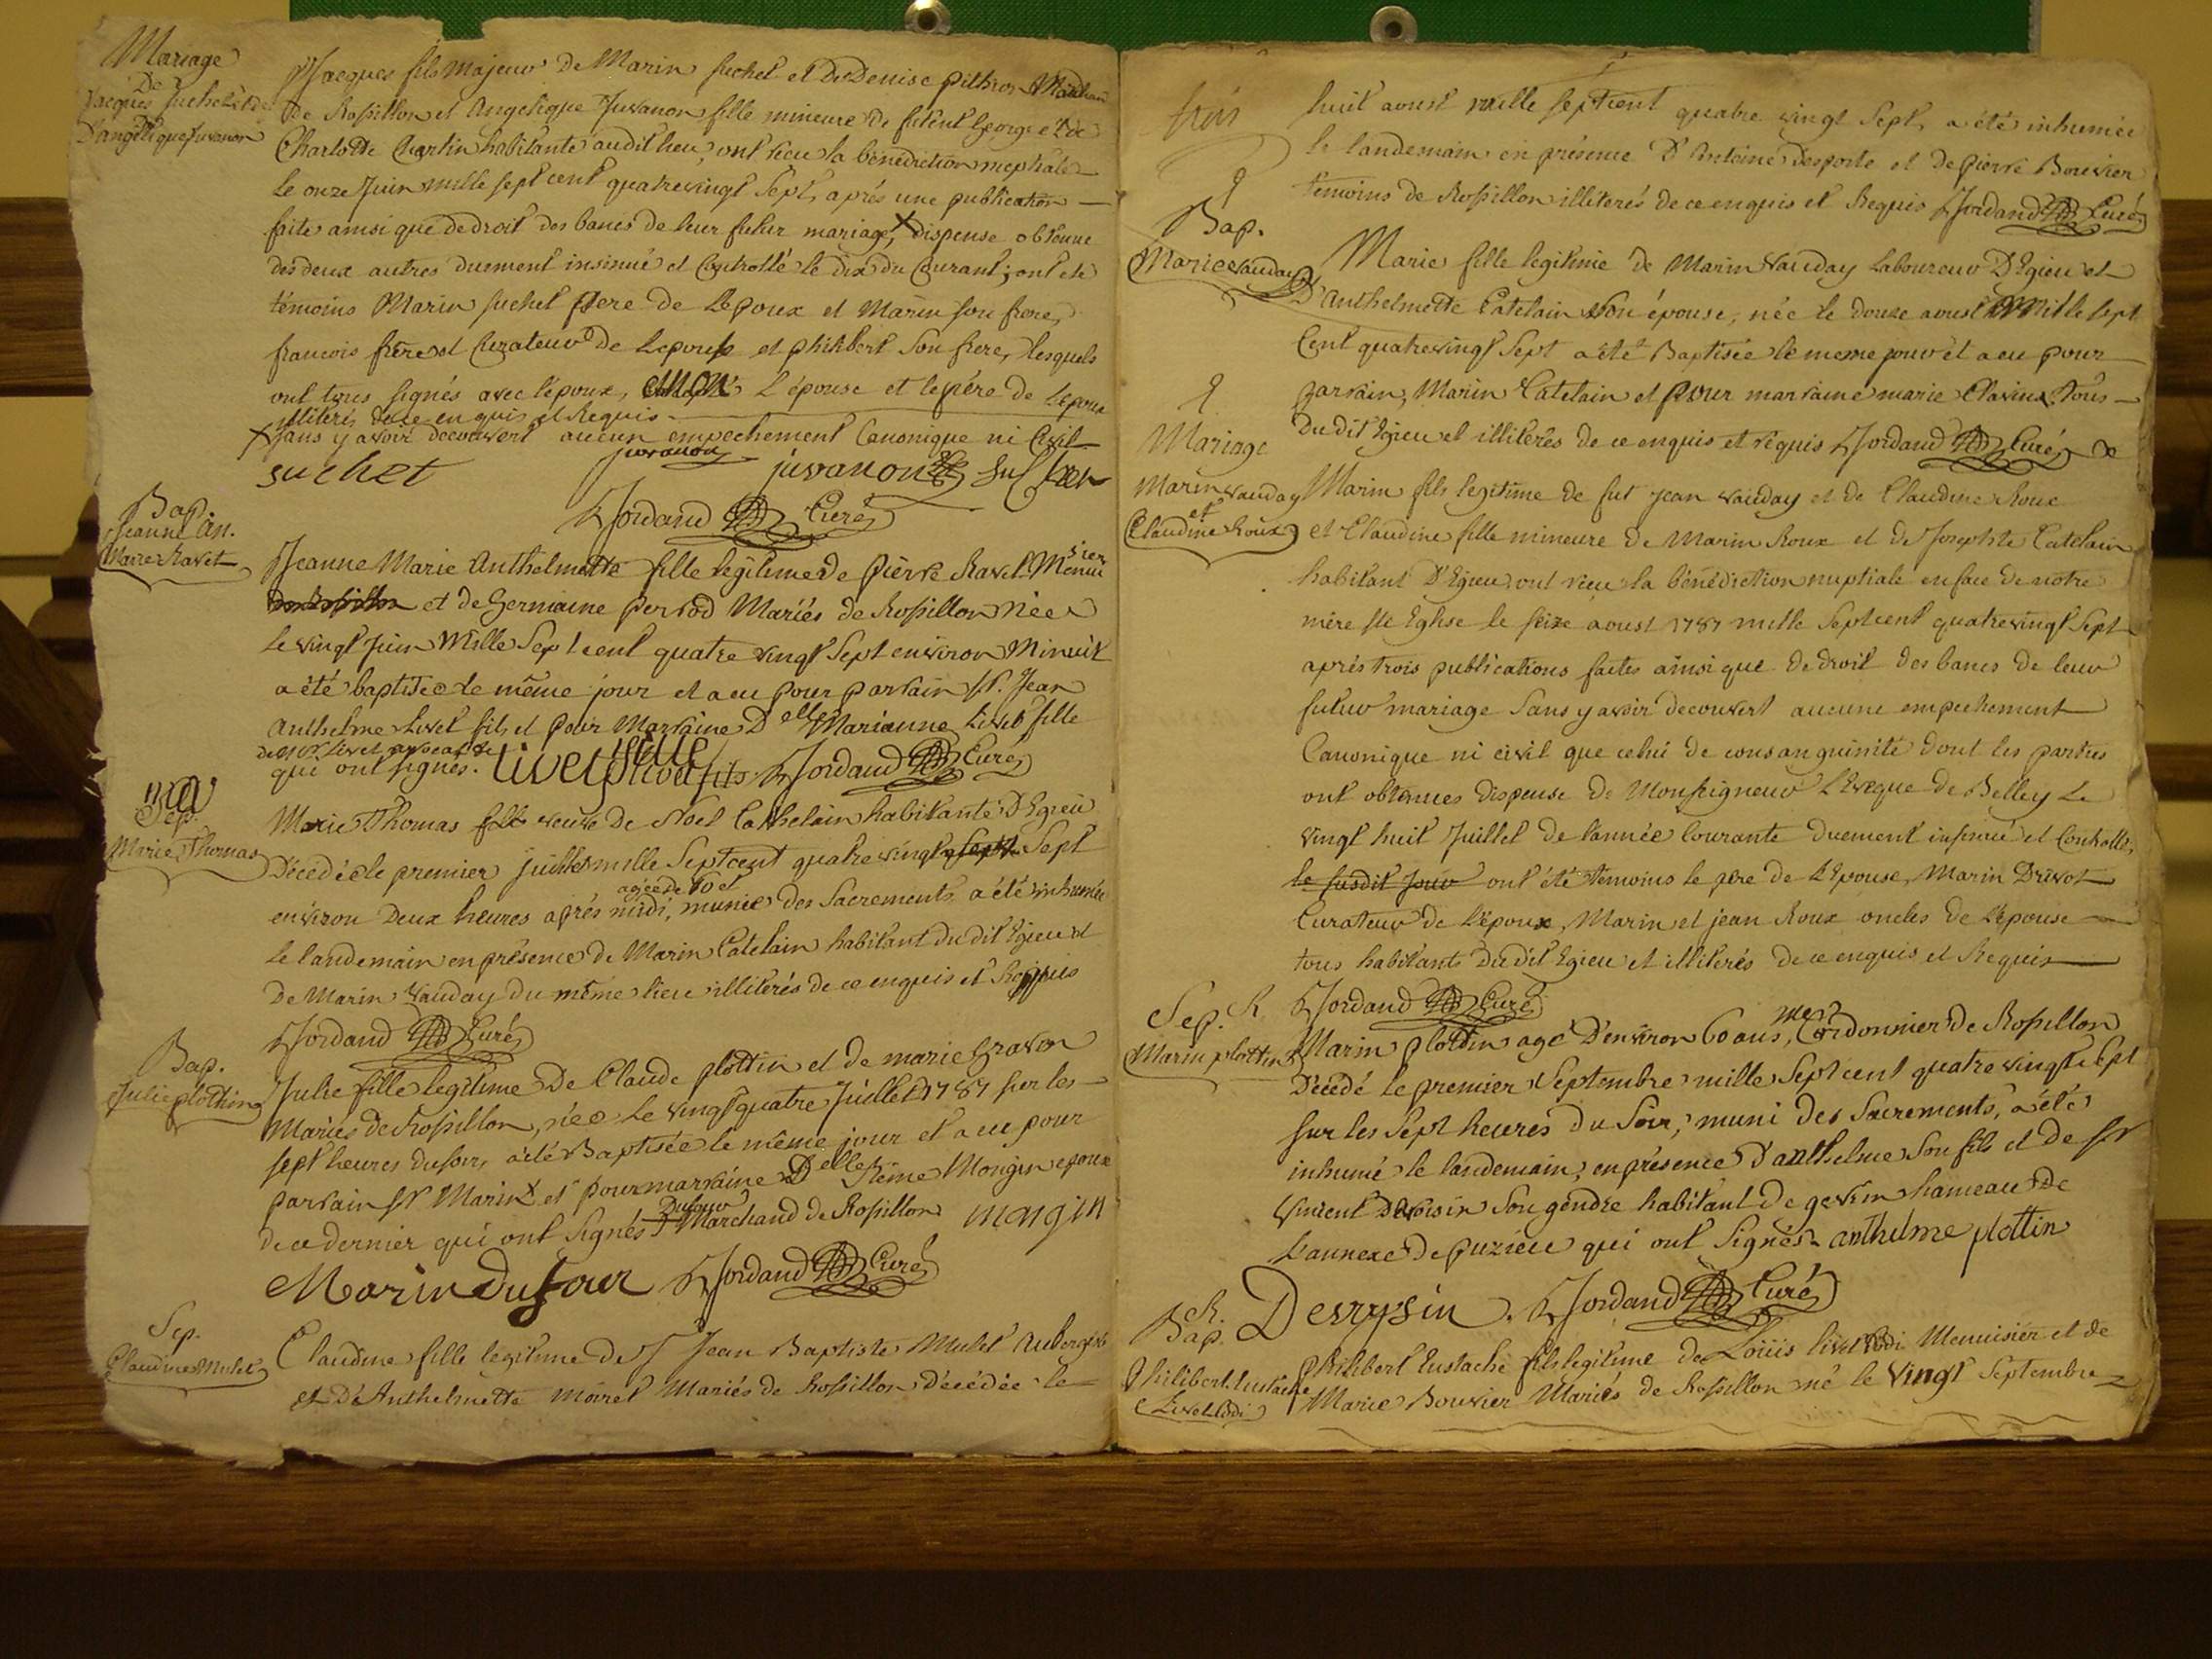 Mariage
De
Jacques Suchet et de
D'angelique Juvanon
Jacques fils majeur de Marin Suchet et De Denise pithion Marchand
de Rossillon et Angelique Juvanon fille mineure de futent George et de
Charlotte habitante audit lieu, ont recu la bénédiction nuptiale
Le onze Juin mille sept cent quatrevingt Sept, aprés une publication
faite ainsi que de droit des bancs de leur futur mariage, X dispense obtenue
des deux autres duement insinué et Controllé le dix du Courant; ont ete
témoins Marin Suchet pere de L'Epoux et Marin son frere,
francois frere et Curateur de Lepouse et philibert Son frere, lesquels
ont tous signés avec l'époux, L'épouse et le pére de L'epoux
illiterés de ce enquis et Requis
X sans y avoir decouvert aucun empechement Canonique ni Civil
suchet juvanon juvanon
Jordand Curé
Bap.
Jeanne An.
Marie Ravet
Jeanne Marie Anthelmette fille legitime de Pierre Ravet Menuisier
et de Germaine perrod Mariés de Rossillon née
Le vingt Juin Mille Sept cent quatre vingt Sept environ Minuit
a été baptisée le même jour et a eu pour parrain Sr. Jean
Anthelme Livet fils et pour Marraine Delle Marianne Livet fille
de Sr. Livet avocat
qui ont signés. Livet fille Livet fils Jordand Curé
Sep.
Marie Thomas
Marie Thomas veuve de Noel Cathelain habitante D'Egieu
Décédée le premier juillet mille Septcent quatre vingt Sept
agée de 60 et
environ Deux heures aprés midi, munie des Sacrements a été inhumée
Le landemain en présence de Marin Catelain habitant du dit Egieu et
De Marin Vauday du même lieu illiterés de ce enquis et Requis
Jordand Curé
Bap.
Julie plottin
Julie fille legitime De Claude plottin et de marie Gravon
Mariés de Rossillon, née le vingt quatre Juillet 1787 sur les
sept heures du soir, a été Baptisée le même jour et a eu pour
parrain Sr Marin X et pour marraine Delle Reine Mongin epouse
Dufour
de ce dernier qui ont Signés X Marchand de Rossillon mangin
Marin Dufour Jordand Curé
Sep.
Claudine Mulet
Claudine fille legitime de Jean Baptiste Mulet Aubergiste
et D'Anthelmette moiret Mariés de Rossillon Décédée le
trois
huit aoust mille septcent quatre vingt Sept, a été inhumée
le landemain en présence D'Antoine Desporte et de pierre Bouvier
témoins de Rossillon illiterés de ce enquis et Requis Jordand Curé
Bap.
Marie Vauday
Marie fille legitime de Marin Vauday Laboureur D'Egieu et
D'Anthelmette Catelain son épouse, née le douze aoust Mille Sept
Cent quatrevingt Sept a été Baptisée le meme jour et a eu pour
parrain, Marin Catelain et pour marraine marie Clavin tous
Du dit Egieu et illiterés de ce enquis et réquis Jordand Curé
Mariage
Marin Vauday
et
Claudine Roux
Marin fils legitime de fut Jean Vauday et de Claudine Roux
et Claudine fille mineure de Marin Roux et de Josephte Catelain
habitant D'Egieu, ont recu la bénédiction nuptiale en face de notre
mère Ste Eglise le seize aoust 1787 mille Septcent quatrevingt Sept
aprés trois publications faites ainsi que de droit des bancs de leur
futur mariage Sans y avoir decouvert aucune empechement
Canonique ni civil que celui de consanguinité dont les parties
ont obtenues dispense de Monseigneur L'Eveque de Belley Le
vingt huit Juillet de l'année Courante duement insinué et Controllé,
le susdit Jour ont été témoins le pere de L'Epouse, Marin Drivot
Curateur de L'époux, Marin et jean Roux oncles de L'epouse
tous habitants Du dit Egieu et illiterés de ce enquis et Requis
Jordand Curé
Sep. R.
Marin plottin
Marin plottin agé D'environ 60 ans, Me Cordonnier de Rossillon
Décédé le premier Septembre mille Sept cent quatre vingt Sept
sur les Sept heures du Soir, muni des Sacrements, a été
inhumé le landemain, en présence D'anthelme Son fils et de Sr
Vincent son gendre habitant de hameau de
L'annexe de puzieu qui ont Signés anthelme plottin
Jordand Curé
R.
Bap.
Philibert Eustache
Livet
Philibert Eustache fils legitime de Loüis Livet Menuisier et de
Marie Bouvier Mariés de Rossillon né le Vingt Septembre